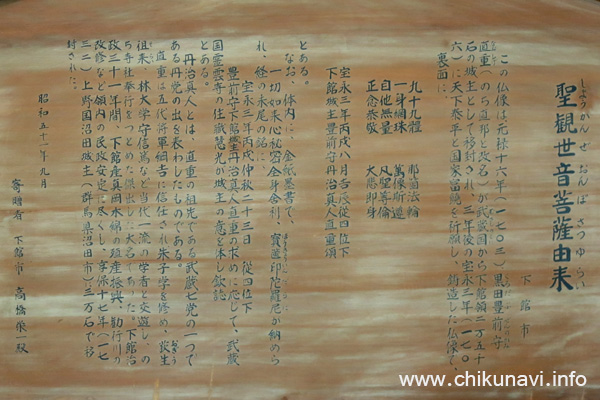 しょうがんぜおんぼさつゆらい
聖観世音菩薩由来
下館市
この仏像は元禄十六年(一七〇三)黒田豊前守
直重(のち直邦と改名)が武蔵国から下館領二万五千
石の城主として移封され、三年後の宝永三年(一七〇
六)に天下泰平と国家留鎮を祈願し、鋳造した仏像で、
裏面に、
九十九種
一身網珠 萬像斯遍
自他無量 凡聖等倫
正念恭敬 大悲即身
宝永三年丙戌八月吉辰従四位下
下館城主豊前守丹治真人直重頌
とある。
なお、体内に、金紙墨書で、
一切如来心秘密全身舎利、宝篋印陀羅尼が納めら
れ、経の末尾の銘に、
宝永三年丙戌仲秋二十三日 従四位下
豊前守下館城主丹治真人直重の求めに応じて、武蔵
国霊雲寺の住職慧光が城主の意を体し敬誌
とある。
丹治真人とは、直重の祖先である武蔵七党の一つで
ある丹党の出を表わしたものである。
直重は五代将軍綱吉に信任され朱子学を修め、荻生
祖来、林大学守信篤など当代一流の学者と交遊し、の
ち寺社奉行をつとめた傑出した大名であった。下館治
政三十一年間、下館産真岡木綿の殖産振興、勤行川の
改修など領内の民政安定に尽くし、享保十七年(一七
三二)上野国沼田城主(群馬県沼田市)三万石で移
封された。
昭和五十一年九月
寄贈者 下館市 高橋榮一殿
www.chikunavi.info